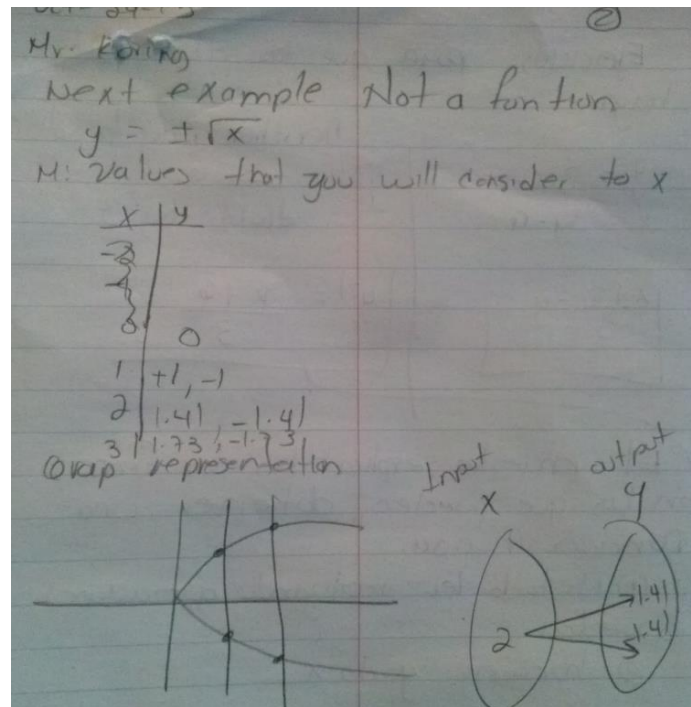 ②
Mr. Koring
Next example Not a funtion
y = ±√x
M: Values that you will consider to x
x | y
0
1 | +1, -1
2 | 1.41, -1.41
3 | 1.73, -1.73
Grap representation
Input output
x y
2
1.41
-1.41